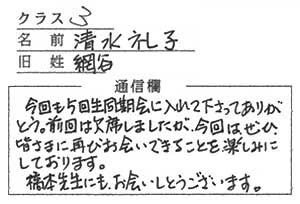 クラス 3
名前 清水礼子
旧姓 網谷
通信欄
今回も5回生同期会に入れて下さってありが
とう。前回は欠席しましたが、今回はぜひ、
皆さまに再びお会いできることを楽しみに
しております。
橋本先生にも、お会いしとうございます。